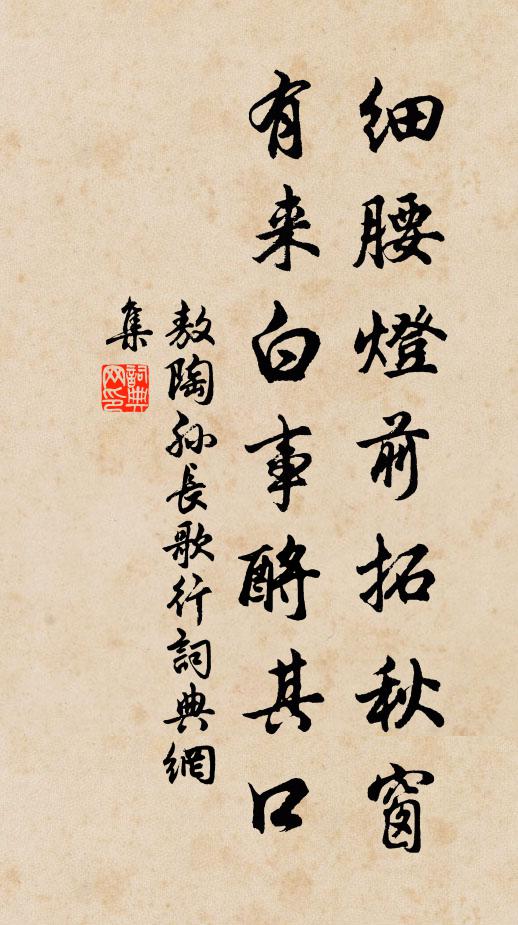 細腰燈前拓秋窗
有来白事酹其口
敖陶孫長歌行詞典網
集
詞典網印